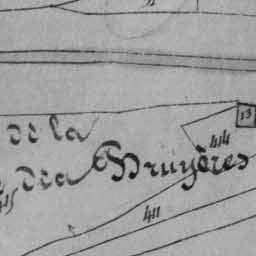 13
de la
414
des Bruyères
415
411